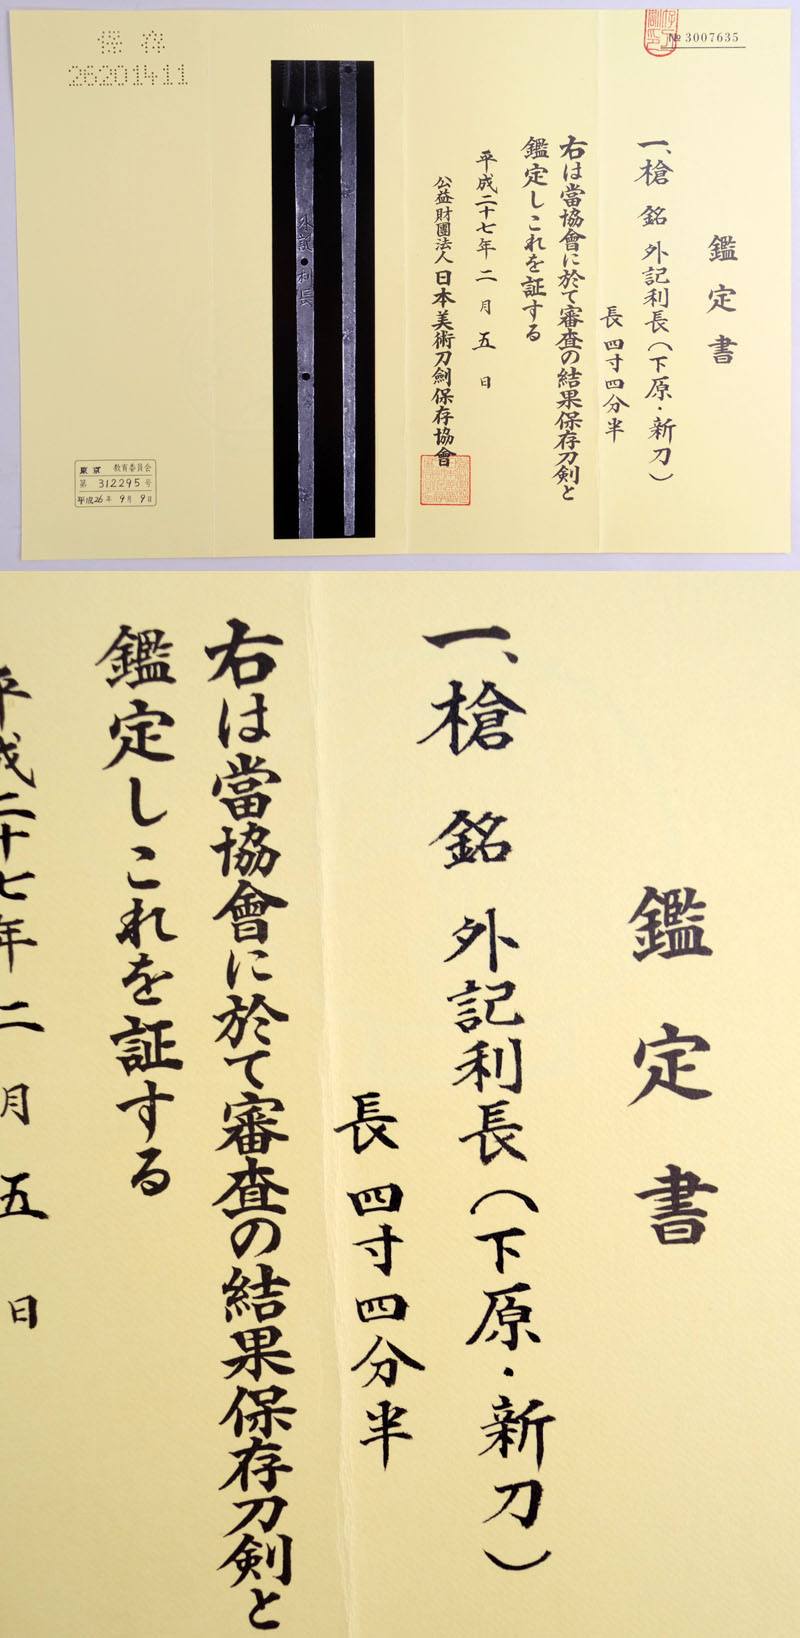 № 3007635
鑑定書
一、槍 銘 外記利長(下原・新刀)
長 四寸四分半
右は當協會に於て審査の結果保存刀剣と
鑑定しこれを証する
平成二十七年 二月 五日
公益財團法人 日本美術刀劍保存協會
保存
26201411
東京 教育委員会
第 312295 号
平成26年 9月 9日
鑑定書
一、槍 銘 外記利長(下原・新刀)
長 四寸四分半
右は當協會に於て審査の結果保存刀剣と
鑑定しこれを証する
平成二十七年 二月 五日